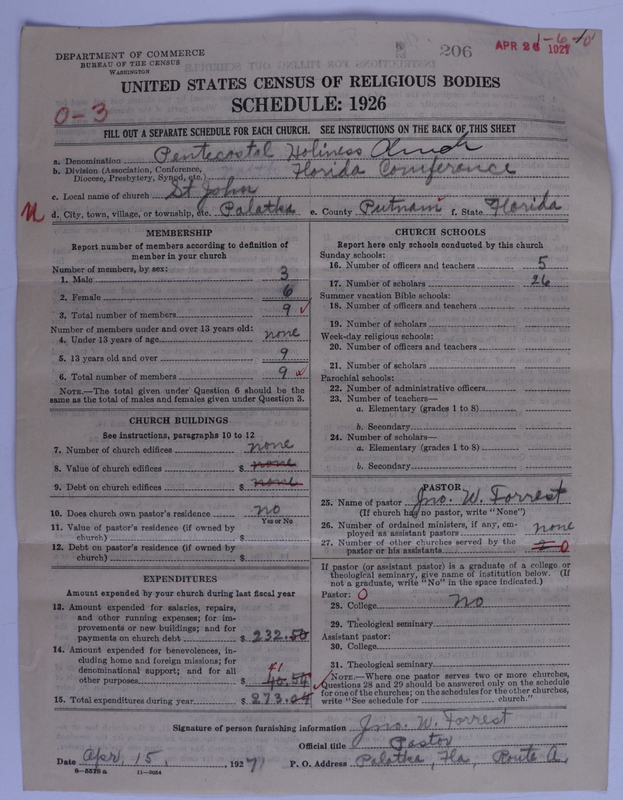 DEPARTMENT OF COMMERCE
BUREAU OF THE CENSUS
WASHINGTON
206
APR 26 1927
1-6-10
UNITED STATES CENSUS OF RELIGIOUS BODIES
SCHEDULE: 1926
0-3
FILL OUT A SEPARATE SCHEDULE FOR EACH CHURCH. SEE INSTRUCTIONS ON THE BACK OF THIS SHEET
a. Denomination Pentecostal Holiness Church
b. Division (Association, Conference, Diocese, Presbytery, Synod, etc.) Florida Conference
c. Local name of church St John
d. City, town, village, or township, etc. Palatka e. County Putnam f. State Florida
MEMBERSHIP
Report number of members according to definition of
member in your church
Number of members, by sex:
1. Male 3
2. Female 6
3. Total number of members 9
Number of members under and over 13 years old:
4. Under 13 years of age none
5. 13 years old and over 9
6. Total number of members 9
NOTE.—The total given under Question 6 should be the
same as the total of males and females given under Question 3.
CHURCH BUILDINGS
See instructions, paragraphs 10 to 12
7. Number of church edifices none
8. Value of church edifices $ none
9. Debt on church edifices $ none
10. Does church own pastor's residence no
Yes or No
11. Value of pastor's residence (if owned by
church) $
12. Debt on pastor's residence (if owned by
church) $
EXPENDITURES
Amount expended by your church during last fiscal year
13. Amount expended for salaries, repairs,
and other running expenses; for im-
provements or new buildings; and for
payments on church debt $ 232.50
14. Amount expended for benevolences, in-
cluding home and foreign missions; for
denominational support; and for all
other purposes $ 40.54
41
15. Total expenditures during year $ 273.04
CHURCH SCHOOLS
Report here only schools conducted by this church
Sunday schools:
16. Number of officers and teachers 5
17. Number of scholars 26
Summer vacation Bible schools:
18. Number of officers and teachers
19. Number of scholars
Week-day religious schools:
20. Number of officers and teachers
21. Number of scholars
Parochial schools:
22. Number of administrative officers
23. Number of teachers—
a. Elementary (grades 1 to 8)
b. Secondary
24. Number of scholars—
a. Elementary (grades 1 to 8)
b. Secondary
PASTOR
25. Name of pastor Jno. W. Forrest
(If church has no pastor, write "None")
26. Number of ordained ministers, if any, em-
ployed as assistant pastors none
27. Number of other churches served by the
pastor or his assistants 0
If pastor (or assistant pastor) is a graduate of a college or
theological seminary, give name of institution below. (If
not a graduate, write "No" in the space indicated.)
Pastor: 0
28. College No
29. Theological seminary
Assistant pastor:
30. College
31. Theological seminary
NOTE.—Where one pastor serves two or more churches,
Questions 28 and 29 should be answered only on the schedule
for one of the churches; on the schedules for the other churches,
write "See schedule for church."
Signature of person furnishing information Jno. W. Forrest
Official title Pastor
Date Apr, 15, 1927 P. O. Address Palatka, Fla, Route A,
8-5578a 11-9054